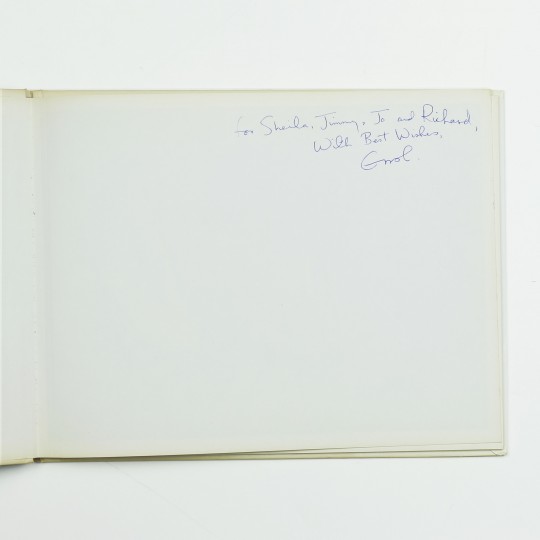 for Sheila, Jimmy, Jo and Richard,
With Best Wishes,
Errol.